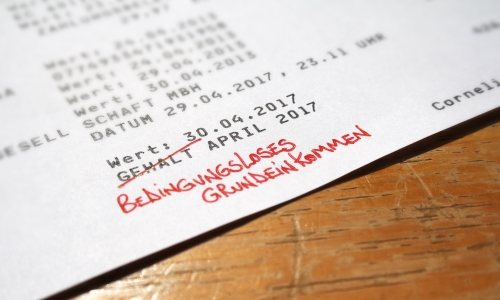 Wert: 26.04.2017
Wert: 24.04.2013
Wert: 29.04.2013
Wert: 30.04.2013
GESELL SCHAFT MBH
DATUM 29.04.2017, 23.11 UHR
Corneli
Wert: 30.04.2017
GEHALT APRIL 2017
BEDINGUNGSLOSES
GRUNDEINKOMMEN